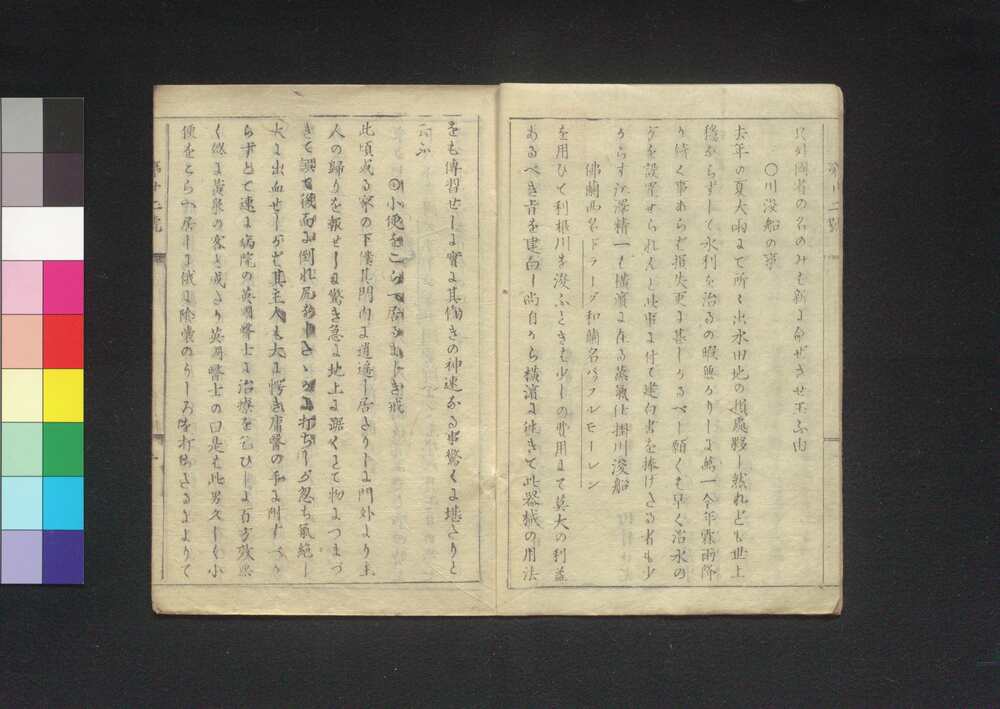 只外國者の名のみを新よ命ぜさせ玉ふ由
〇川浚船の事
去年の夏大雨よて所々出水田地の損處夥し然れども世上
穏ならずして水利を治るの暇無かりしよ萬一今年霖雨降
り續く事あらば損失更よ甚しかるべし願くも早く治水の
を設置せられんと此事よ付て建白書を捧けたる者も少
からす江澤精一も横濱よ在る蒸氣仕掛川浚船
佛蘭西名ドラーグ和蘭名バッフルモーレン
を用ひて利根川を浚ふときも少しの費用よて莫大の利益
あるべき旨を建白し尚自から横濱よ速きて此器械の用法
をも傳習せしよ實よ其働きの神速なる事驚くよ堪たりと
云ふ
〇小便をこらへ居るましき戒
此頃或る家の下僕其門内よ逍遥し居たりしよ門外より主
人の歸りを報せしよ驚き急よ地上よ跪くとて物よつまづ
きて誤て後面よ倒れ尻を打ちしが忽ち氣絶し
大よ出血せしかど其主人も大よ愕き庸醫の手よ附すべか
らずとて速よ病院の英國醫士よ治療を乞ひしよ百方效無
く終よ黄泉の客と成たり英國醫士の曰是も此男久しく小
便をこらへ居りよ俄よ陰嚢のうしろを打ちたるよよりて
第十二號